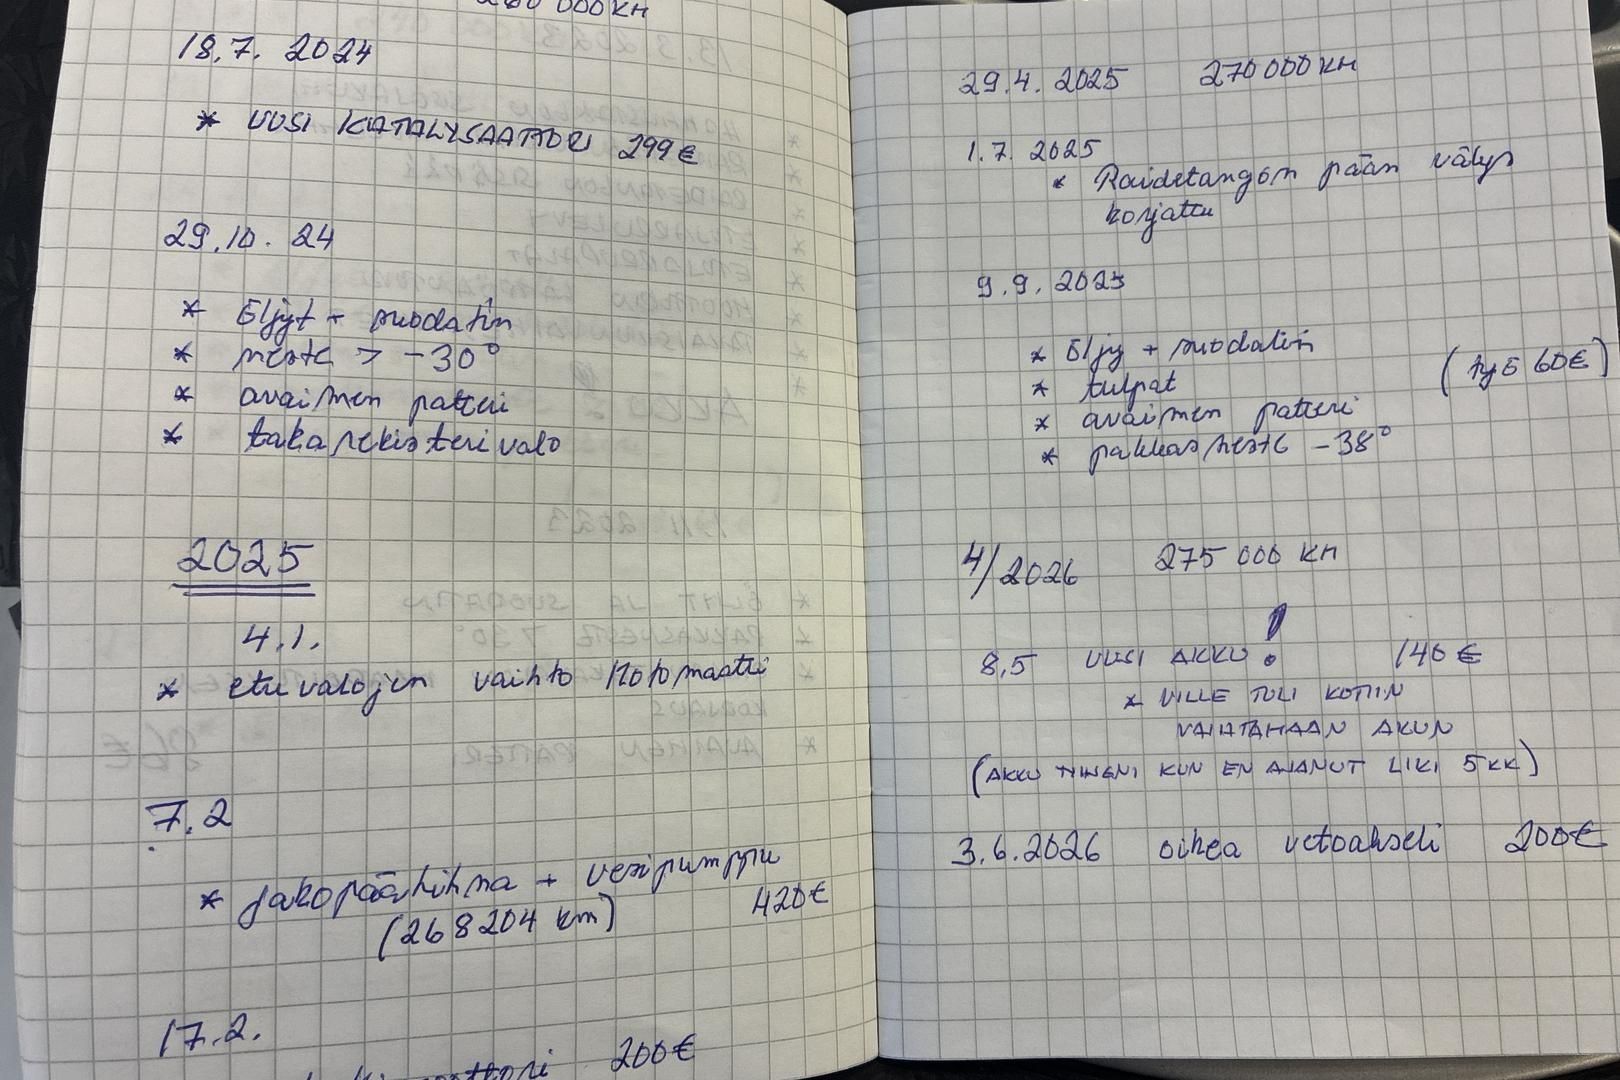 260 000 KM
18.7. 2024
* UUSI KATALYSAATTORI 299€
29.10. 24
* Öljyt + suodatin
* neste > -30°
* avaimen patteri
* takarekisterivalo
2025
4.1.
* etuvalojen vaihto
7.2
* jakopäähihna + vesipumppu
(268204 km) 420€
17.2.
200€
29.4. 2025 270 000 KM
1.7. 2025
* Raidetangon pään välys
korjattu
9.9. 2025
* Öljy + suodatin
* tulpat (työ 60€)
* avaimen patteri
* pakkasneste -38°
4/2026 275 000 KM
8.5 UUSI AKKU! 140€
* VILLE TULI KOTIIN
VAIHTAMAAN AKUN
(AKKU TYHJENI KUN EN AJANUT LIKI 5KK)
3.6.2026 oikea vetoakseli 200€